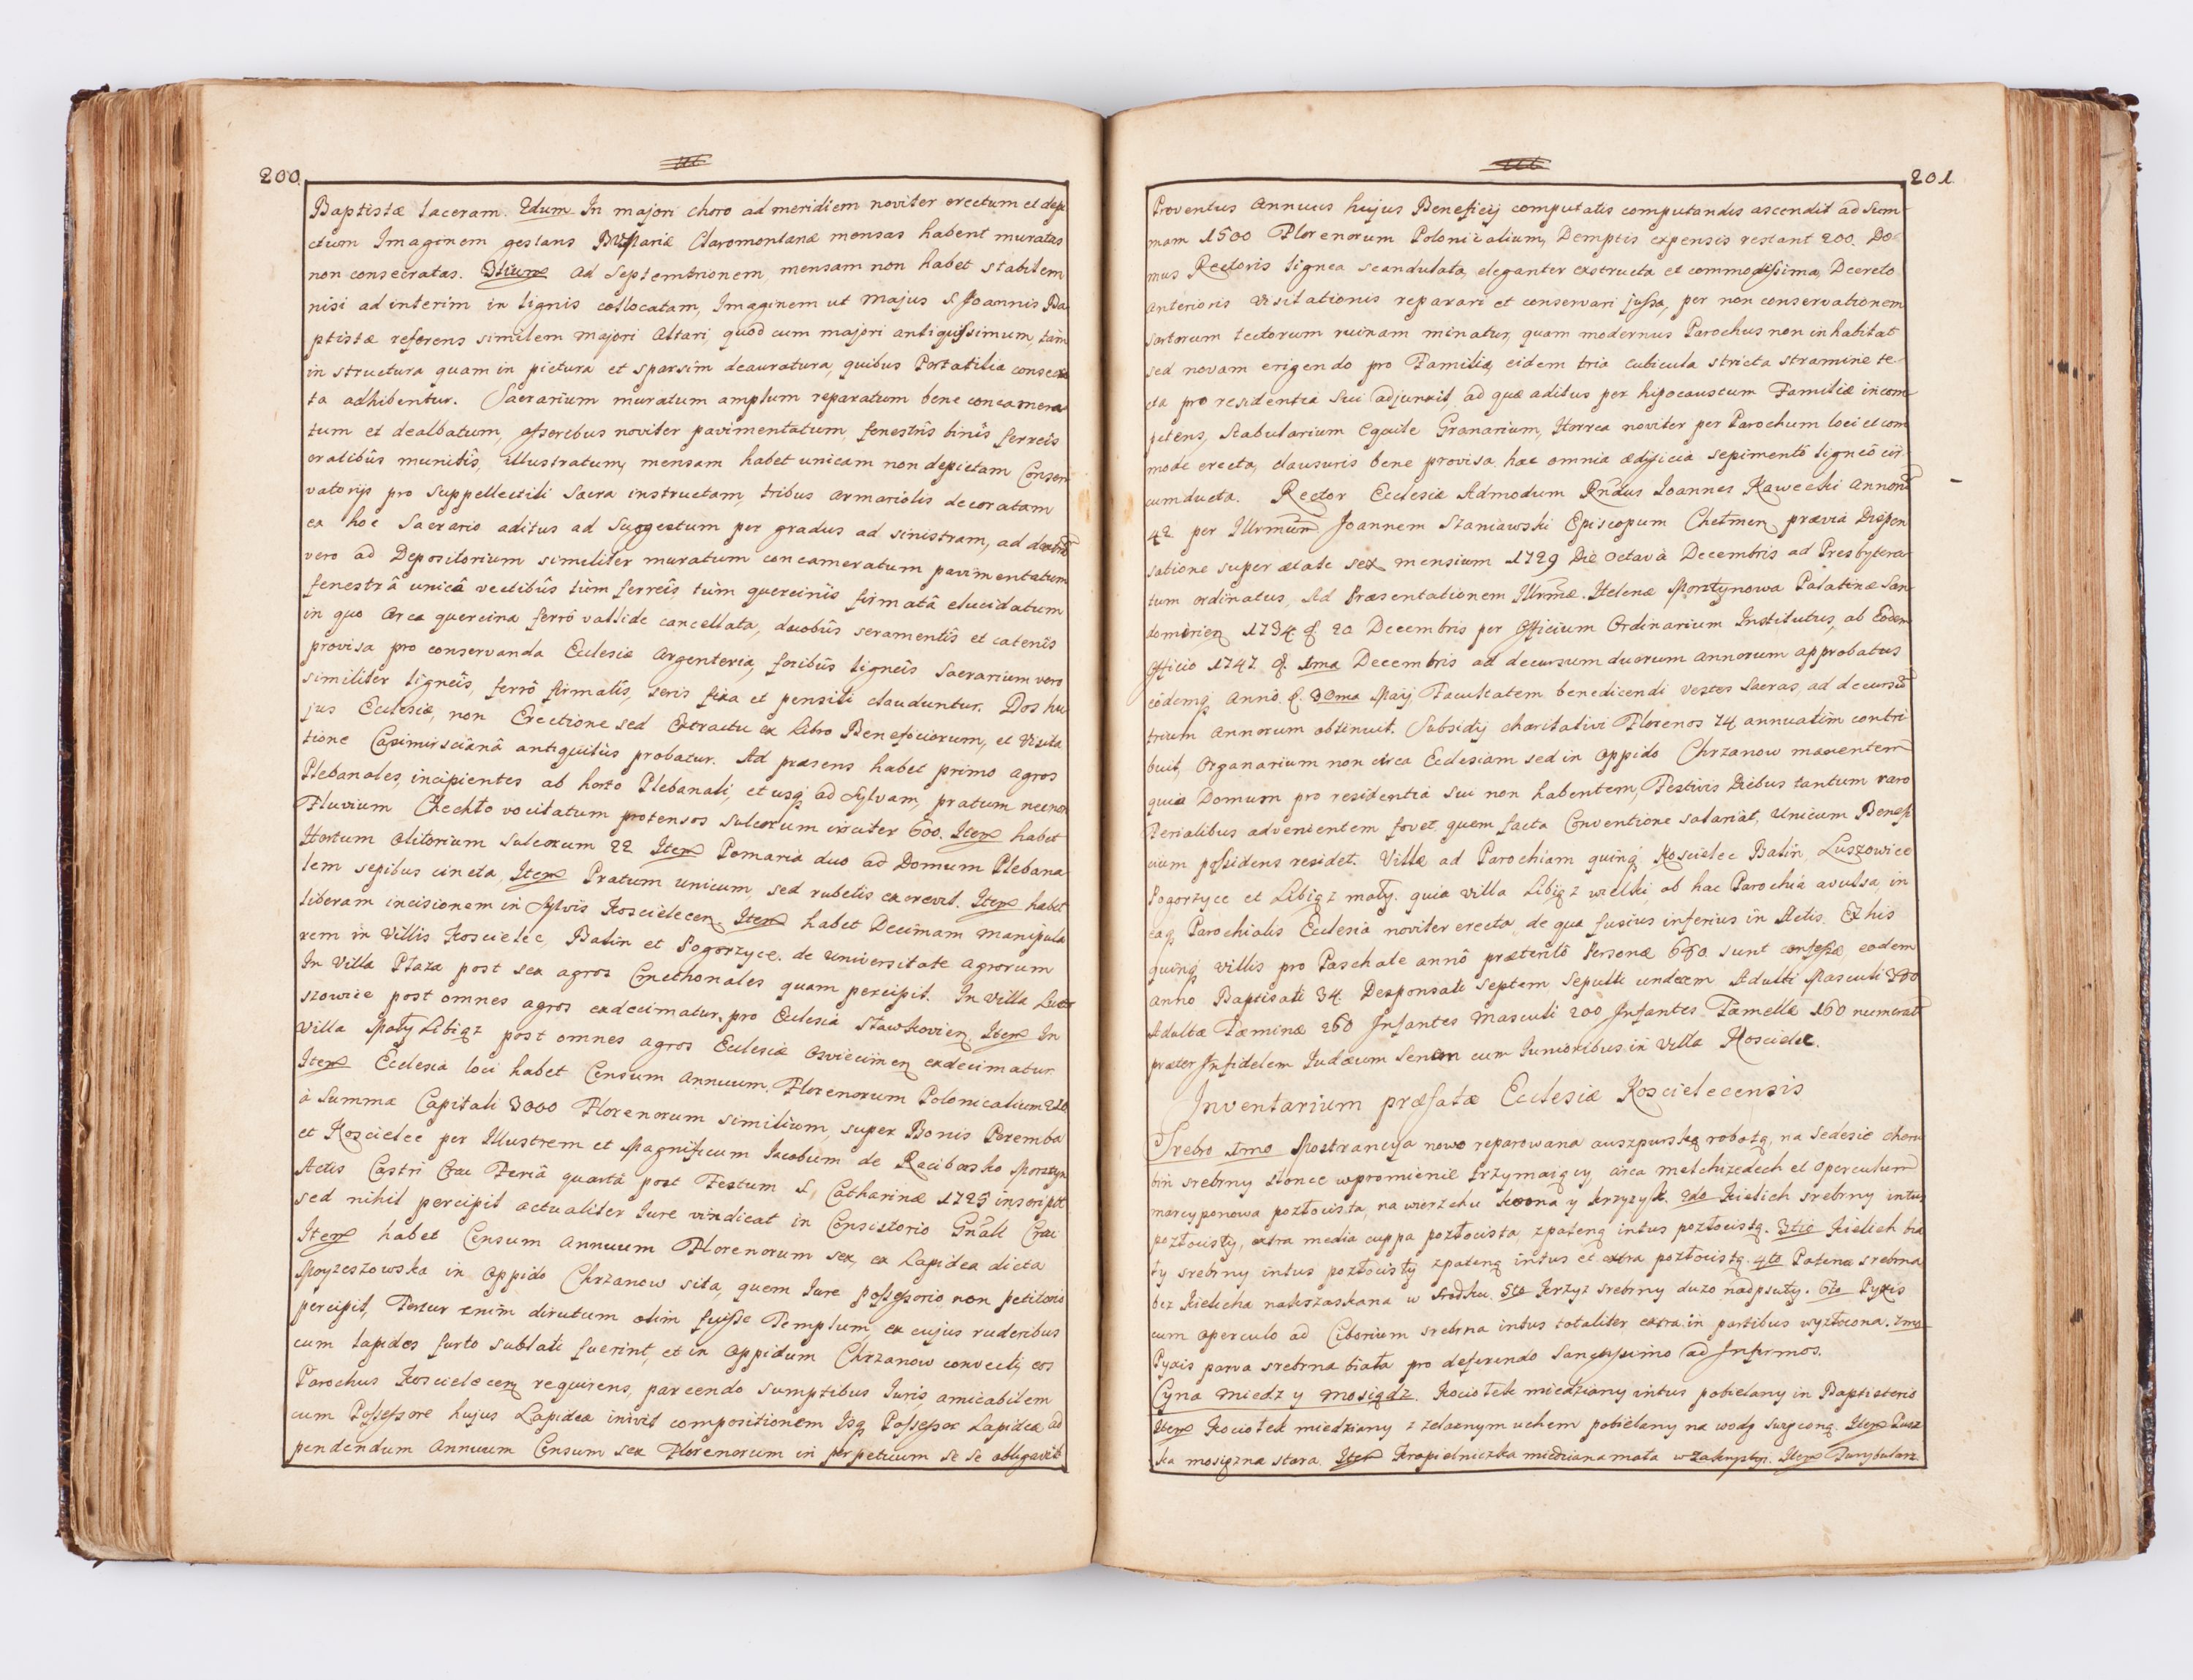 200.
Baptistæ laceram. 2dum In majori choro ad meridiem noviter erectum et depi
ctum Imaginem gestans BVMariæ Claromontanæ mensas habent muratas
non consecratas. 3tium ad Septemtrionem, mensam non habet stabilem
nisi ad interim in lignis collocatam, Imaginem ut Majus S. Joannis Ba
ptistæ referens similem majori Altari, quod cum majori antiquissimum, tam
in structura quam in pictura et sparsim deauratura, quibus Portatilia consecra
ta adhibentur. Sacrarium muratum amplum reparatum bene concamera
tum et dealbatum, asseribus noviter pavimentatum, fenestris binis ferreis
cratibus munitis, illustratum, mensam habet unicam non depictam Conser
vatorijs pro Suppellectili Sacra instructam, tribus armariolis decoratam
ex hoc Sacrario aditus ad Suggestum per gradus ad sinistram, ad dextrã
vero ad Depositorium similiter muratum concameratum pavimentatum
fenestrâ unicâ vectibûs tùm ferreîs, tùm quercinîs firmatâ elucidatum
in quo Arca quercina ferrô vallide cancellata, duobûs seramentîs et catenîs
provisa pro conservanda Ecclesiæ Argenteria, foribûs ligneîs Sacrarium vero
similiter ligneîs, ferrô firmatîs, seris fixa et pensili clauduntur. Dos hu
jus Ecclesiæ, non Erectione sed Extractu ex Libro Beneficiorum, et Visita
tione Casimirscianâ antiquitùs probatur. Ad præsens habet primo agros
Plebanales, incipientes ab horto Plebanali, et usq ad Sylvam, pratum necnon
Fluvium Chechło vocitatum protensos Sulcorum circiter 600. Item habet
Hortum Olitorium Sulcorum 22 Item Pomaria duo ad Domum Plebana
lem sepibus cincta, Item Pratum unicum, sed rubetis excrevit. Item habet
liberam incisionem in Sylvis Koscielecen. Item habet Decimam manipula
rem in Villis Koscielec, Balin et Pogorzyce. de universitate agrorum
In Villa Płaza post sex agros Cmethonales quam percipit. In Villa Lus
szowice post omnes agros exdecimatur, pro Ecclesia Sławkovien. Item In
Villa Mały Libiąz post omnes agros Ecclesiæ Osviecimen exdecimatur.
Item Ecclesia loci habet Censum Annuum. Florenorum Polonicalium 210
à Summa Capitali 3000 Florenorum similium, super Bonis Poremba
et Koscielec per Illustrem et Magnificum Jacobum de Raciborsko Morsztyn
Actis Castri Crac Feriâ quartâ post Festum S. Catharinæ 1725 inscript
sed nihil percipit actualiter Jure vindicat in Consistorio Gñali Crac
Item habet Censum Annuum Florenorum sex, ex Lapidea dicta
Moyzeszowska in Oppido Chrzanow sita, quem Jure possessorio non petitorio
percipit, Fertur enim dirutum olim fuisse Templum, ex cujus ruderibus
cum lapides furto sublati fuerint, et in Oppidum Chrzanow convecti, eos
Parochus Koscielecen requirens, parcendo sumptibus Juris, amicabilem
cum Possessore hujus Lapideæ inivit compositionem Isq Possessor Lapideæ ad
pendendum Annuum Censum sex Florenorum in perpetuum se se obligavit
201.
Proventus Annuus hujus Beneficij computatis computandis ascendit ad Sum
mam 1500 Florenorum Polonicalium, Demptis expensis restant 200. Do
mus Rectoris lignea scandulata, eleganter exstructa et commodissima, Decreto
anterioris Visitationis reparari et conservari jussa, per non conservationem
sartorum tectorum ruinam minatur, quam modernus Parochus non inhabitat
sed novam erigendo pro Familia, eidem tria cubicula stricta stramine te
cta pro residentia sui adjunxit, ad quæ aditus per hipocaustum Familiæ incom
petens, Stabularium Equile Granarium, Horrea noviter per Parochum loci et com
mode erecta, clausuris bene provisa, hæc omnia ædificia sepimentô ligneô cir
cumducta. Rector Ecclesiæ Admodum Rñdus Joannes Kawecki Annorũ
42 per Illrmum Joannem Szaniawski Episcopum Chełmen, prævia Dispen
satione super ætate sex mensium 1729 Die Octavà Decembris ad Presbytera
tum ordinatus, Ad Præsentationem Illrmæ. Helenæ Morsztynowa Palatinæ San
domirien 1734 d. 20 Decembris per Officium Ordinarium Institutus, ab Eodem
Officio 1747 d. 1ma Decembris ad decursum duorum Annorum approbatus
eodemq Anno d. 30ma Maij Facultatem benedicendi vestes Sacras, ad decursũ
trium Annorum obtinuit. Subsidij charitativi Florenos 74 annuatim contri
buit, Organarium non circa Ecclesiam sed in Oppido Chrzanow manentem
quia Domum pro residentia sui non habentem, Festivis Diebus tantum raro
Ferialibus advenientem fovet, quem facta Conventione salariat, Unicum Benefi
cium possidens residet. Villæ ad Parochiam quinq Koscielec Balin, Luszowice
Pogorzyce et Libiąz mały. quia Villa Libiąz wielki, ab hac Parochiâ avulsa, in
eaq Parochialis Ecclesia noviter erecta, de qua fusius inferius in Actis. Ex his
quinq villis pro Paschate annô præteritô Personæ 680. sunt confessæ, eodem
anno Baptisati 34 Desponsati Septem, Sepulti undecim Adulti Masculi 300
Adultæ Fæminæ 260 Infantes Masculi 200 Infantes Fæmellæ 160 numerant
præter Infidelem Judæum Senem cum Junioribus in Villa Koscielec.
Inventarium præfatæ Ecclesiæ Koscielecensis
Srebro 1mo Mostrancya nowo reparowana auszpurską robotą, na Sedesie cheru
bin srebrny słonce wpromienie trzymaiący, circa Melchizedech et Operculum
marcyponowa pozłocista, na wierzchu korona y krzyzyk. 2do Kielich srebrny intus
pozłocisty, extra media cuppa pozłocista, zpateną intus pozłocistą. 3tio Kielich bia
ły srebrny intus pozłocisty zpateną intus et extra pozłocistą. 4to Patena srebrna
bez Kielicha nakszaskana w Srodku. 5to Krzyz srebrny duzo nadpsuty. 6to Pyxis
cum operculo ad Ciborium srebrna intus totaliter extra in partibus wyzłocona. 7mo
Pyxis parva srebrna biała pro deferendo Sanctissimo ad Infirmos.
Cyna Miedz y Mosiądz. Kociołek miedziany intus pobielany in Baptisterio
Item Kociołek miedziany z zelaznym uchem pobielany na wodę Swięconą. Item Pusz
ka mosięzna stara. Item Kropielniczka miedziana mała w Zakrystyi. Item Turybularz